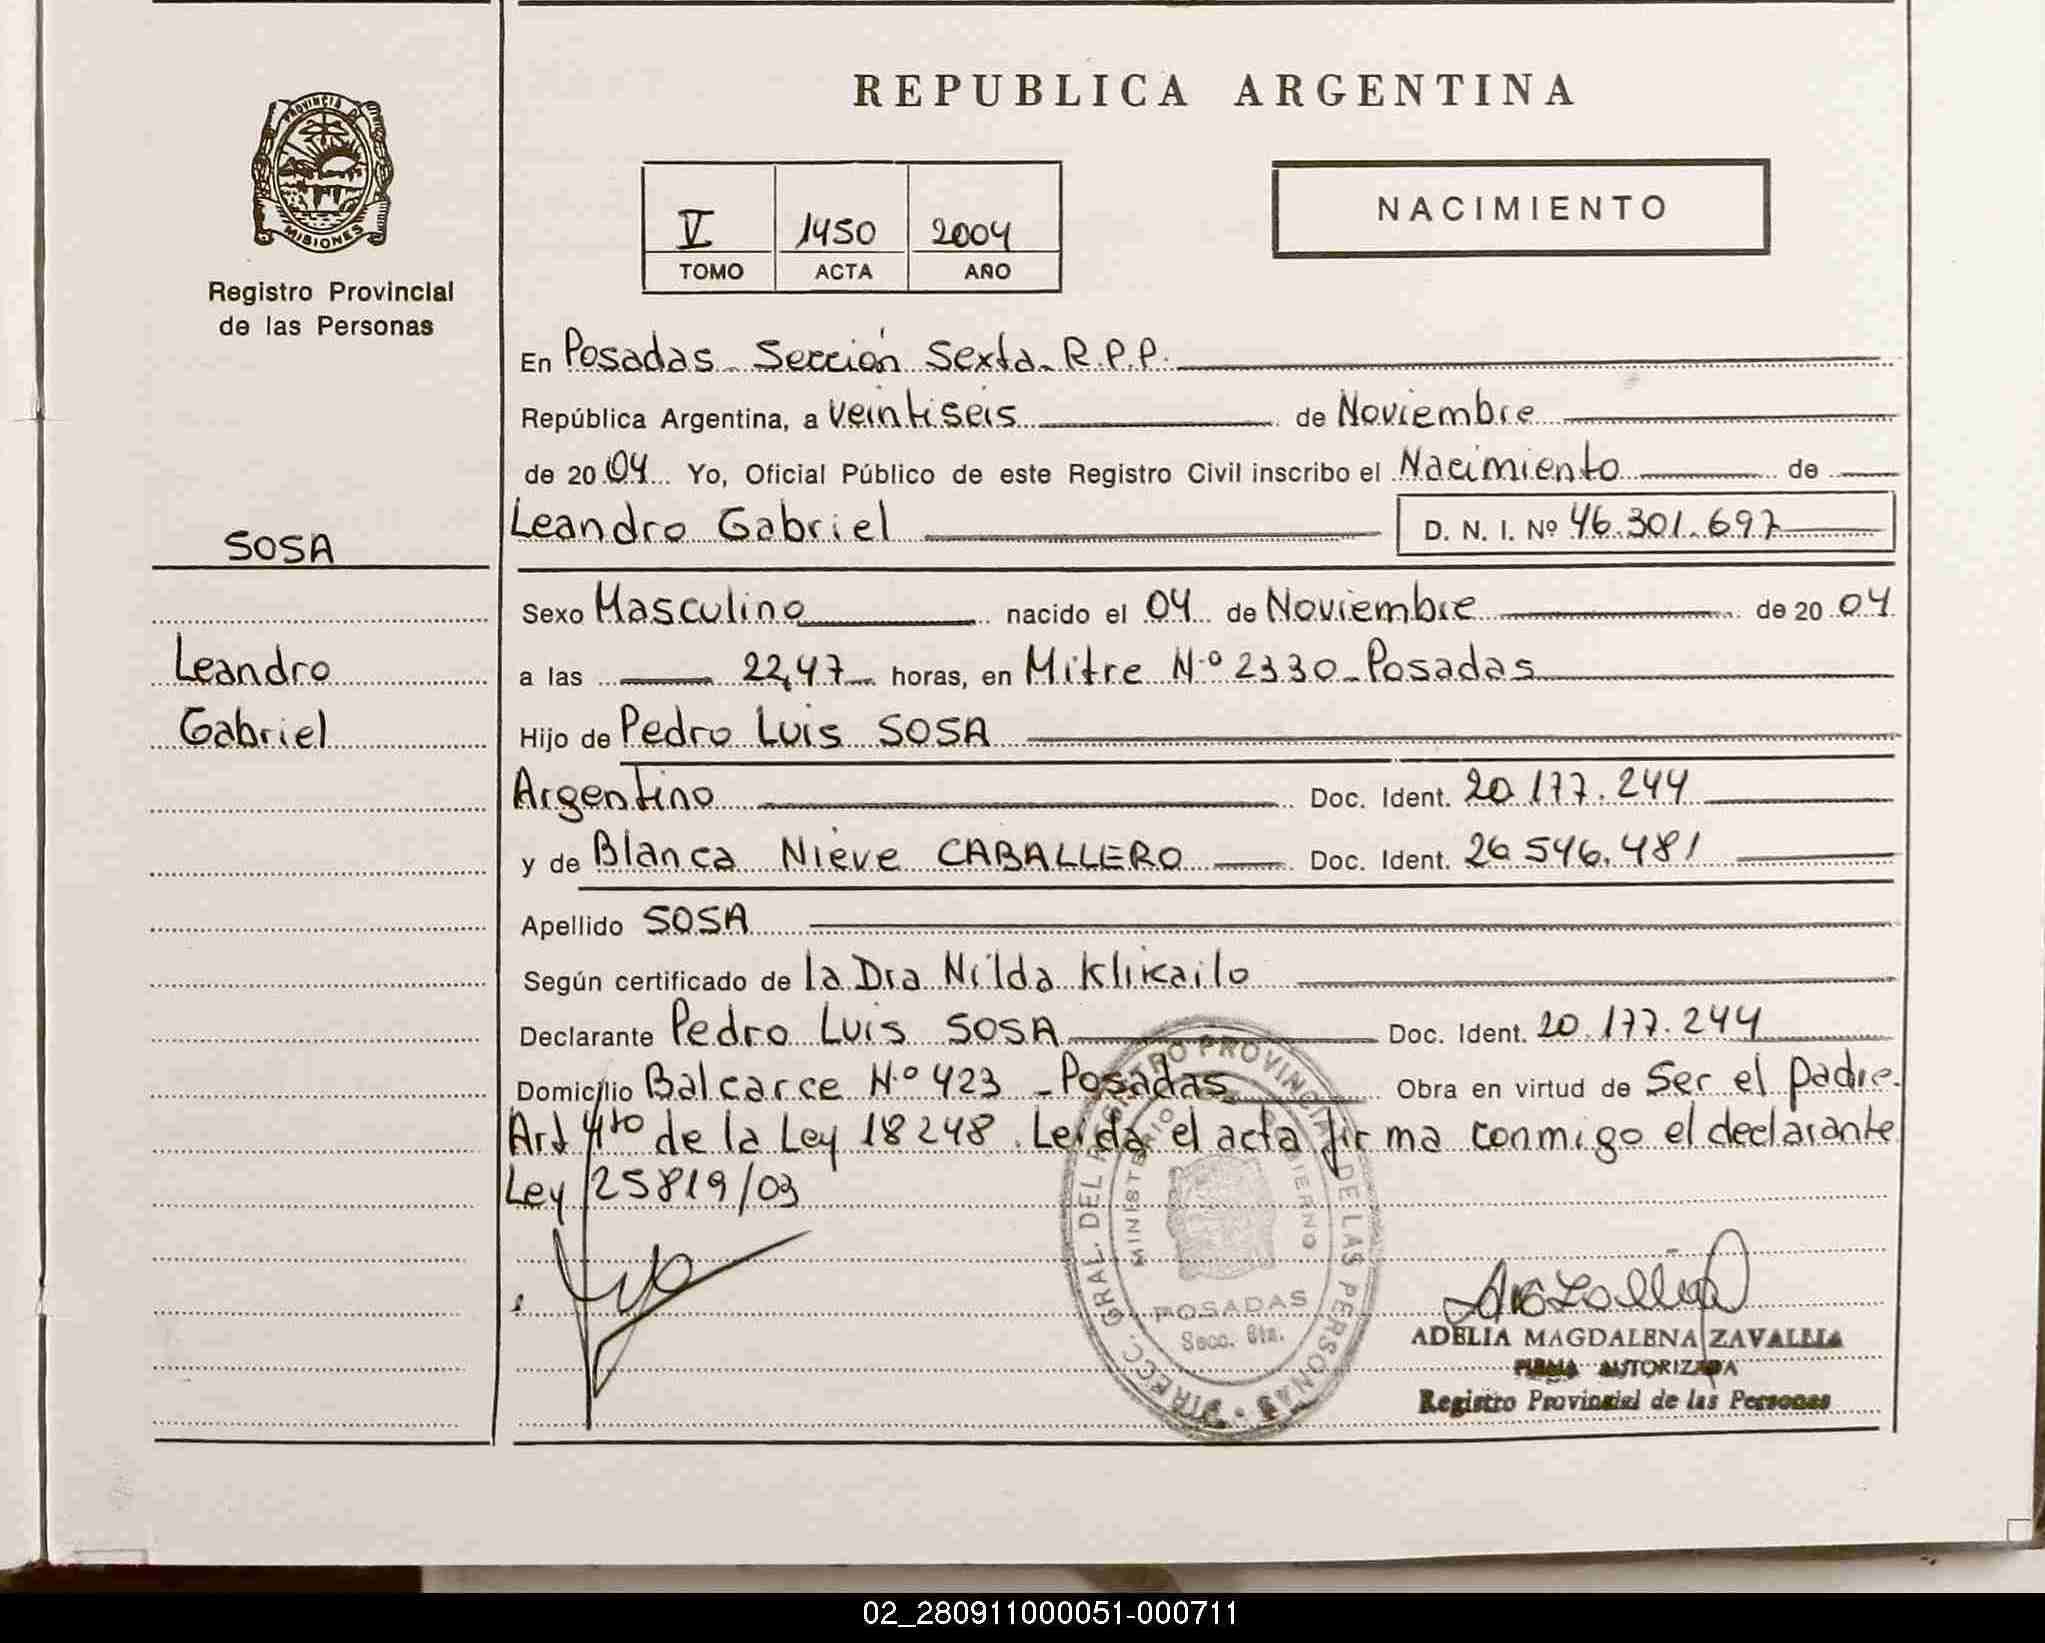 REPUBLICA ARGENTINA
PROVINCIA DE
MISIONES
Registro Provincial
de las Personas
V 1450 2004
TOMO ACTA AÑO
NACIMIENTO
En Posadas Sección Sexta R.P.P.
República Argentina, a veintiseis de Noviembre
de 2004 Yo, Oficial Público de este Registro Civil inscribo el Nacimiento de
Leandro Gabriel D. N. I. Nº 46.301.697
SOSA
Leandro
Gabriel
Sexo Masculino nacido el 04 de Noviembre de 2004
a las 22,47 horas, en Mitre N.º 2330 - Posadas
Hijo de Pedro Luis SOSA
Argentino Doc. Ident. 20.177.244
y de Blanca Nieve CABALLERO Doc. Ident. 26.546.481
Apellido SOSA
Según certificado de la Dra Nilda Klikailo
Declarante Pedro Luis SOSA Doc. Ident. 20.177.244
Domicilio Balcarce N.º 423 - Posadas Obra en virtud de Ser el padre.
Art 4to de la Ley 18248. Leída el acta firma conmigo el declarante
Ley 25819/03
DIRECC. GRAL. DEL REGISTRO PROVINCIAL DE LAS PERSONAS
MINISTERIO DE GOBIERNO
POSADAS
Secc. 6ta.
ADELIA MAGDALENA ZAVALLIA
FIRMA AUTORIZADA
Registro Provincial de las Personas
02_280911000051-000711